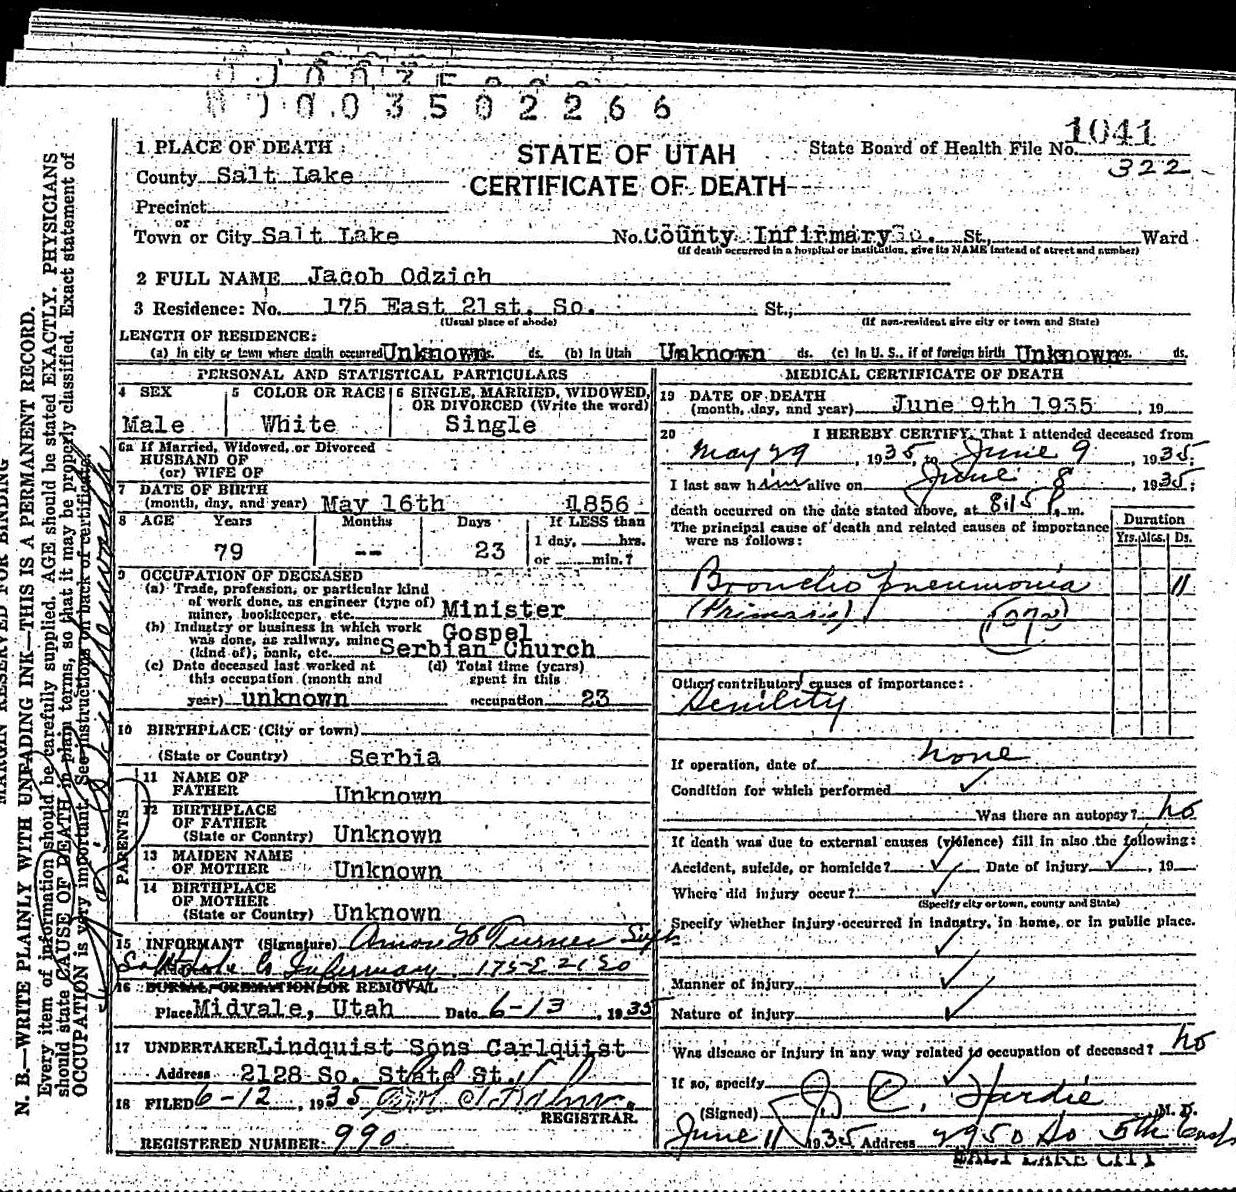 0 0 0 3 5 0 2 2 6 6
1041
1 PLACE OF DEATH
STATE OF UTAH
State Board of Health File No.
322
County Salt Lake
CERTIFICATE OF DEATH
Precinct
or
Town or City Salt Lake No. County Infirmary So. St., Ward
(If death occurred in a hospital or institution, give its NAME instead of street and number)
2 FULL NAME Jacob Odzich
3 Residence: No. 175 East 21st. So. St.,
(Usual place of abode) (If non-resident give city or town and State)
LENGTH OF RESIDENCE:
(a) In city or town where death occurred Unknown ds. (b) In Utah Unknown ds. (c) In U. S., if of foreign birth Unknown ds.
PERSONAL AND STATISTICAL PARTICULARS
4 SEX Male
5 COLOR OR RACE White
6 SINGLE, MARRIED, WIDOWED, OR DIVORCED (Write the word) Single
6a If Married, Widowed, or Divorced
HUSBAND OF
(or) WIFE OF
7 DATE OF BIRTH
(month, day, and year) May 16th 1856
8 AGE Years Months Days If LESS than
79 -- 23 1 day, hrs.
or min.?
9 OCCUPATION OF DECEASED
(a) Trade, profession, or particular kind
of work done, as engineer (type of)
miner, bookkeeper, etc. Minister
(b) Industry or business in which work Gospel
was done, as railway, mine
(kind of), bank, etc. Serbian Church
(c) Date deceased last worked at (d) Total time (years)
this occupation (month and spent in this
year) unknown occupation 23
10 BIRTHPLACE (City or town)
(State or Country) Serbia
PARENTS
11 NAME OF
FATHER Unknown
12 BIRTHPLACE
OF FATHER
(State or Country) Unknown
13 MAIDEN NAME
OF MOTHER Unknown
14 BIRTHPLACE
OF MOTHER
(State or Country) Unknown
15 INFORMANT (Signature) Amos H Turner Supt
Salt Lake Co Infirmary 175 E 21 So
16 BURIAL, CREMATION OR REMOVAL
Place Midvale, Utah Date 6-13, 1935
17 UNDERTAKER Lindquist Sons Carlquist
Address 2128 So. State St.
18 FILED 6-12, 1935
REGISTRAR.
REGISTERED NUMBER 990
MEDICAL CERTIFICATE OF DEATH
19 DATE OF DEATH
(month, day, and year) June 9th 1935, 19
20 I HEREBY CERTIFY, That I attended deceased from
May 29, 1935, to June 9, 1935;
I last saw him alive on June 8, 1935;
death occurred on the date stated above, at 8:15 P. m.
The principal cause of death and related causes of importance
were as follows:
Duration
Yrs. Mos. Ds.
Broncho pneumonia 11
(Primary)
Other contributory causes of importance:
Senility
If operation, date of none
Condition for which performed
Was there an autopsy? no
If death was due to external causes (violence) fill in also the following:
Accident, suicide, or homicide? Date of injury, 19
Where did injury occur?
(Specify city or town, county and State)
Specify whether injury occurred in industry, in home, or in public place.
Manner of injury
Nature of injury
Was disease or injury in any way related to occupation of deceased? no
If so, specify
(Signed) J. C. Hardie M. D.
June 11 1935 Address 2950 So 5th East
SALT LAKE CITY
MARGIN RESERVED FOR BINDING
N. B.—WRITE PLAINLY WITH UNFADING INK—THIS IS A PERMANENT RECORD.
Every item of information should be carefully supplied. AGE should be stated EXACTLY. PHYSICIANS
should state CAUSE OF DEATH in plain terms, so that it may be properly classified. Exact statement of
OCCUPATION is very important. See instructions on back of certificate.